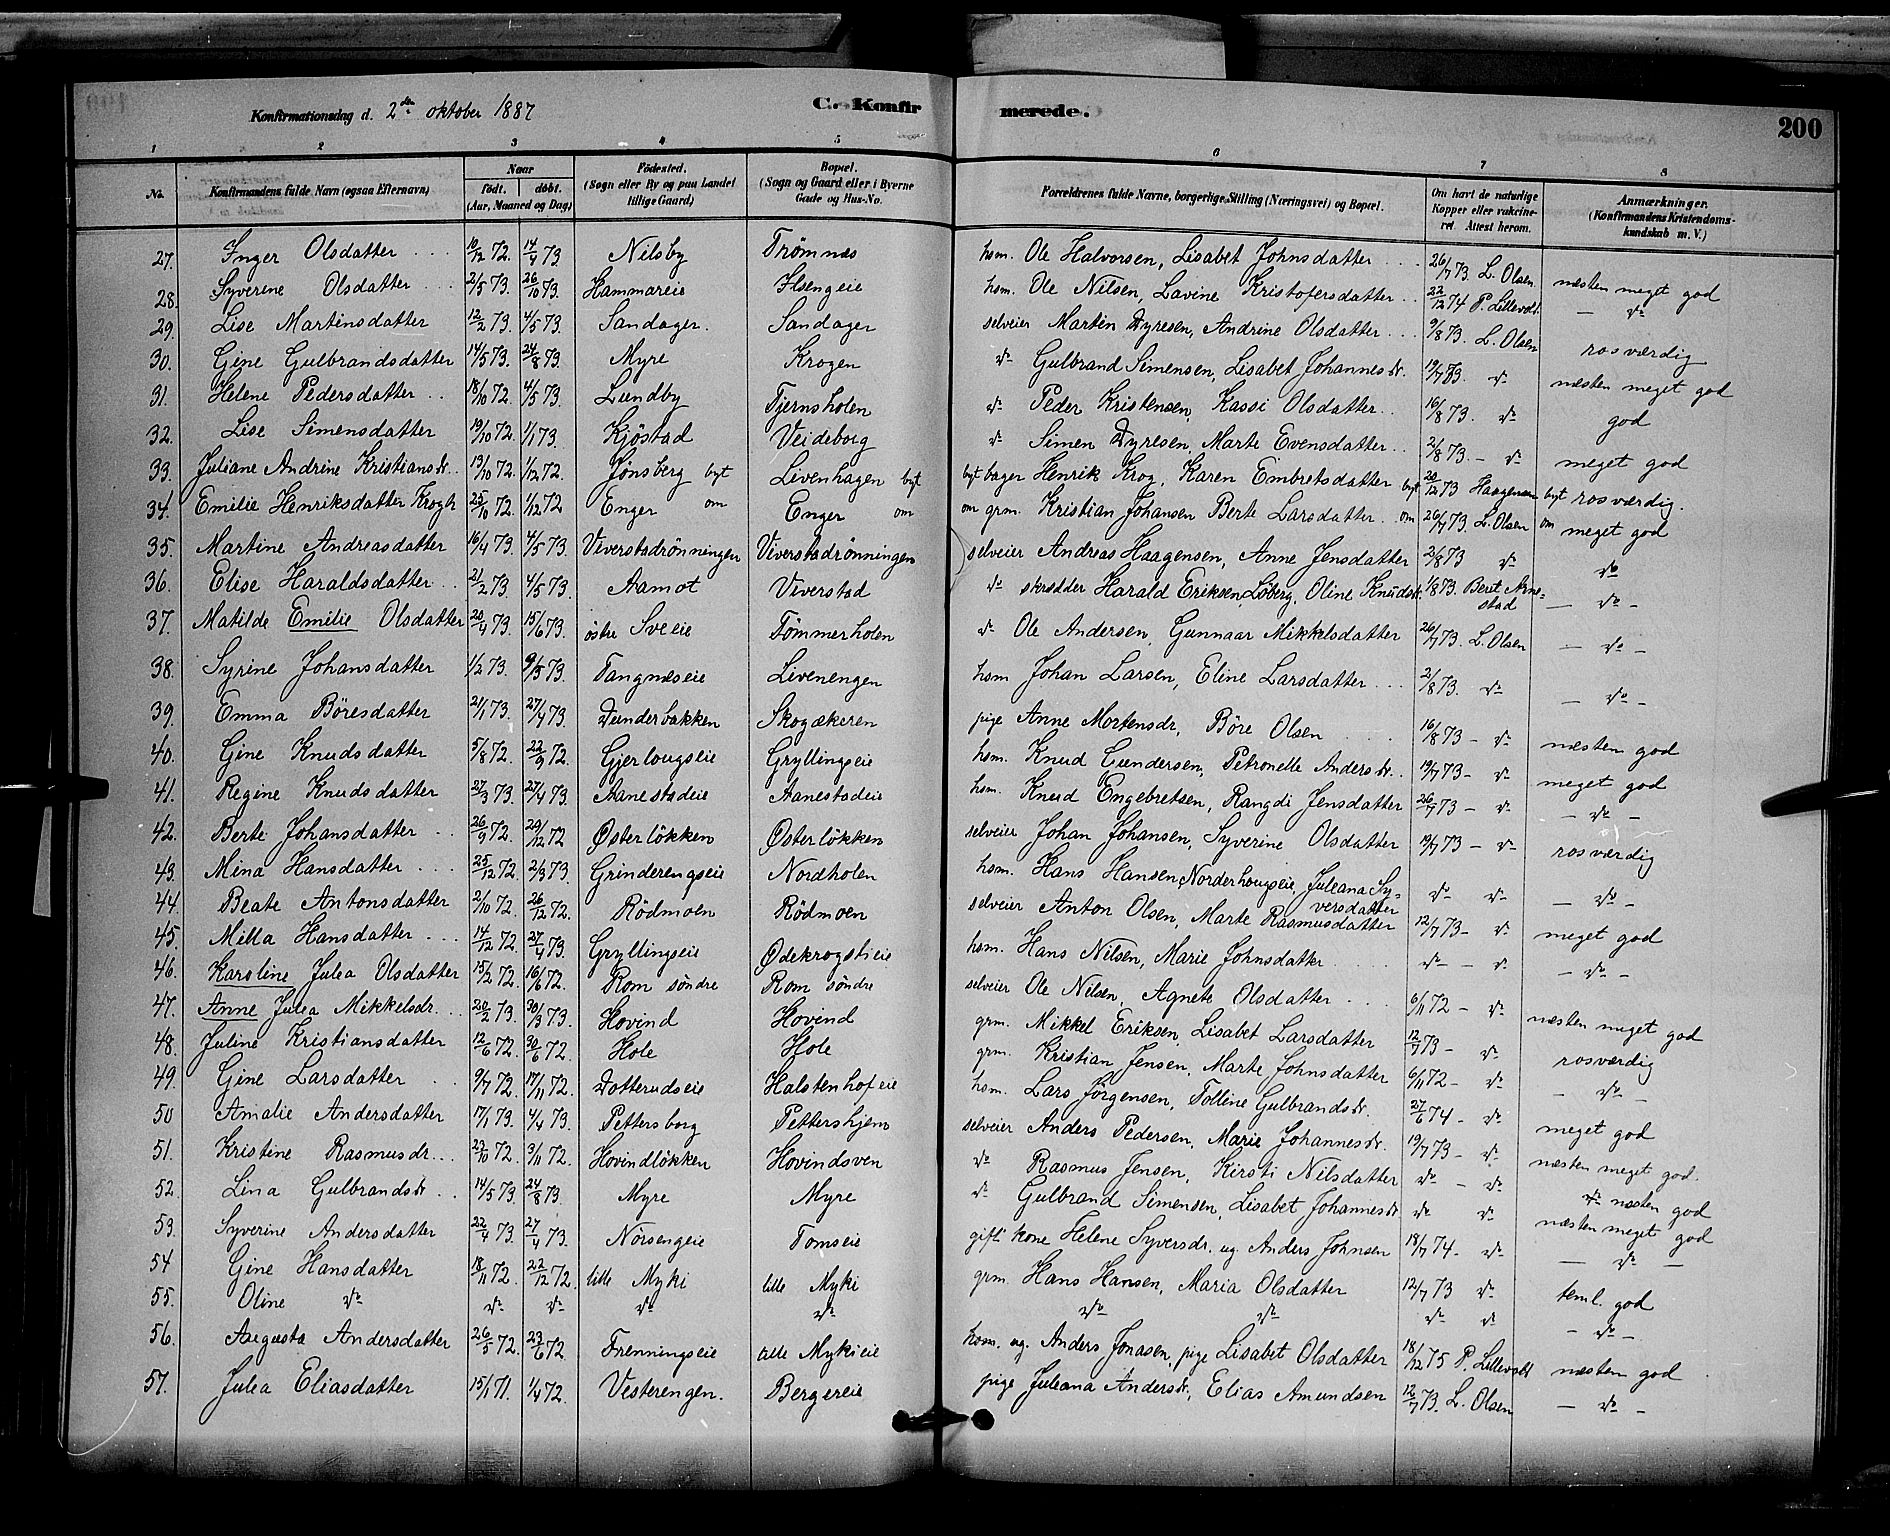 Konfirmationsdag d. 2den oktober 1887
C. Konfirmerede.
200
1 2 3 4 5 6 7 8
No. | Konfirmandens fulde Navn (ogsaa Efternavn) | Naar født. døbt. (Aar, Maaned og Dag) | Fødested. (Sogn eller By og paa Landet tillige Gaard) | Bopæl. (Sogn og Gaard eller i Byerne Gade og Hus-No. | Forældrenes fulde Navne, borgerlige Stilling (Næringsvei) og Bopæl. | Om havt de naturlige Kopper eller vakcineret. Attest herom. | Anmærkninger. (Konfirmandens Kristendomskundskab m. V.)
27. Inger Olsdatter 10/12 72. 14/4 73 Nilsby Trømnæs hsm. Ole Halvorsen, Lisabet Johnsdatter 26/7 73. L. Olsen næsten meget god
28. Syverine Olsdatter 2/5 73. 26/10 73. Hammareie Ilsengeie hsm. Ole Nilsen, Lavine Kristofersdatter 22/12 74 P. Lillevold. — do —
29. Lise Martinsdatter 12/2 73. 4/5 73. Sandager. Sandager selveier Martin Dyresen, Andrine Olsdatter 9/8 73. L. Olsen rosværdig
30. Gine Gulbrandsdatter 14/5 73. 24/8 73. Myre Krogen do Gulbrand Simensen, Lisabet Johannesdr. 19/7 73. do næsten meget god
31. Helene Pedersdatter 18/10 72 4/5 73. Lundby Tjernsholen do Peder Kristensen, Kassi Olsdatter 16/8 73. do god
32. Lise Simensdatter 19/10 72. 1/1 73. Kjöstad Veideborg do Simen Dyresen, Marte Evensdatter 2/8 73. — do meget god
33. Juliane Andrine Kristiansdr. 13/10 72. 1/12 72. Jönsberg byt Livenhagen byt byt bager Henrik Krog, Karen Embretsdatter byt 20/12 73 Haagensen byt rosværdig.
34. Emilie Henriksdatter Krogh 25/10 72. 1/12 72 Enger om Enger om om grm. Kristian Johansen Berte Larsdatter om 26/7 73. L. Olsen om meget god
35. Martine Andreasdatter 16/4 73. 4/5 73. Viverstadrönningen Viverstadrönningen selveier Andreas Haagensen, Anne Jensdatter 2/8 73 do do
36. Elise Haraldsdatter 21/2 73. 4/5 73. Aamot Viverstad do skrædder Harald Eriksen Löberg, Oline Knudsdr. 1/8 73. Berit Arnestad — do —
37. Matilde Emilie Olsdatter 20/4 73. 15/6 73. östre Sveie Tömmerholen do Ole Andersen, Gunnaar Mikkelsdatter 26/7 73. L. Olsen — do —
38. Syrine Johansdatter 1/2 73. 9/5 73. Tangnæseie Livenengen hsm Johan Larsen, Eline Larsdatter 2/8 73. do — do —
39. Emma Böresdatter 21/1 73. 27/4 73. Dunderbakken Skogækeren pige Anne Mortensdr, Böre Olsen 16/8 73 — do næsten god
40. Gine Knudsdatter 5/8 72. 22/9 72. Gjerlougseie Gryllingseie hsm. Knud Gundersen, Petronelle Andersdr. 19/7 73 — do meget god
41. Regine Knudsdatter 27/3 73. 27/4 73. Aanestadeie Aanestadeie hsm. Knud Engebretsen, Rangdi Jensdatter 26/7 73 — do — do —
42. Berte Johansdatter 26/9 72. 29/12 72 Østerlökken Østerlökken selveier Johan Johansen, Syverine Olsdatter 19/7 73 — do rosværdig
43. Mina Hansdatter 25/12 72 2/3 73. Grinderengseie Nordholen hsm. Hans Hansen, Norderhougseie, Juleana Syversdatter do do — do —
44. Beate Antonsdatter 2/10 72. 26/12 72. Rödmoen Rödmoen selveier Anton Olsen, Marte Rasmusdatter 12/7 73 — do meget god
45. Milla Hansdatter 14/12 72. 27/4 73. Gryllingseie Ødekrogstieie hsm. Hans Nilsen, Marie Johnsdatter do — do — do —
46. Karoline Julea Olsdatter 15/2 72. 16/6 72. Rom søndre Rom søndre selveier Ole Nilsen, Agnete Olsdatter 6/11 72 — do næsten meget god
47. Anne Julea Mikkelsdr. 20/2 73. 30/3 73. Hovind Hovind grm. Mikkel Eriksen, Lisabet Larsdatter 12/7 73 — do rosværdig
48. Juline Kristiansdatter 12/6 72. 30/6 72. Hole Hole grm. Kristian Jensen, Marte Johnsdatter 6/11 72 — do — do —
49. Gine Larsdatter 9/7 72. 17/11 72. Dotterudseie Halstenhofeie hsm. Lars Jörgensen, Tolline Gulbrandsdr. 27/6 74 — do meget god
50 Amalie Andersdatter 17/1 73. 4/4 73. Pettersborg Pettershjem selveier Anders Pedersen, Marie Johannesdr. 19/7 73 — do næsten meget god.
51. Kristine Rasmusdr. 23/10 72. 3/11 72. Hovindlökken Hovindsven do Rasmus Jensen, Kirsti Nilsdatter do — do næsten god
52. Lina Gulbrandsdr. 14/5 73. 24/8 73. Myre Myre do Gulbrand Simensen, Lisabet Johannesdr do do næsten meget god
53. Syverine Andersdatter 22/4 73. 27/4 73. Nörsengeie Tomseie gift kone Helene Syversdr. ug. Anders Johnsen 18/7 74 — do — do —
54 Gine Hansdatter 18/11 72. 22/12 72. lille Myki lille Myki grm. Hans Hansen, Maria Olsdatter 12/7 73 do teml. god
55. Oline do do do do do do do do do — do —
56. Augusta Andersdatter 26/5 72. 23/6 72. Frenningseie lille Mykieie hsm. ug. Anders Jonasen, pige Lisabet Olsdatter 18/12 75 P. Lillevold næsten god
57. Julea Eliasdatter 15/1 71. 1/4 72. Vesterengen. Bergereie pige Juleana Andersdr., Elias Amundsen 12/7 73. L. Olsen — do —